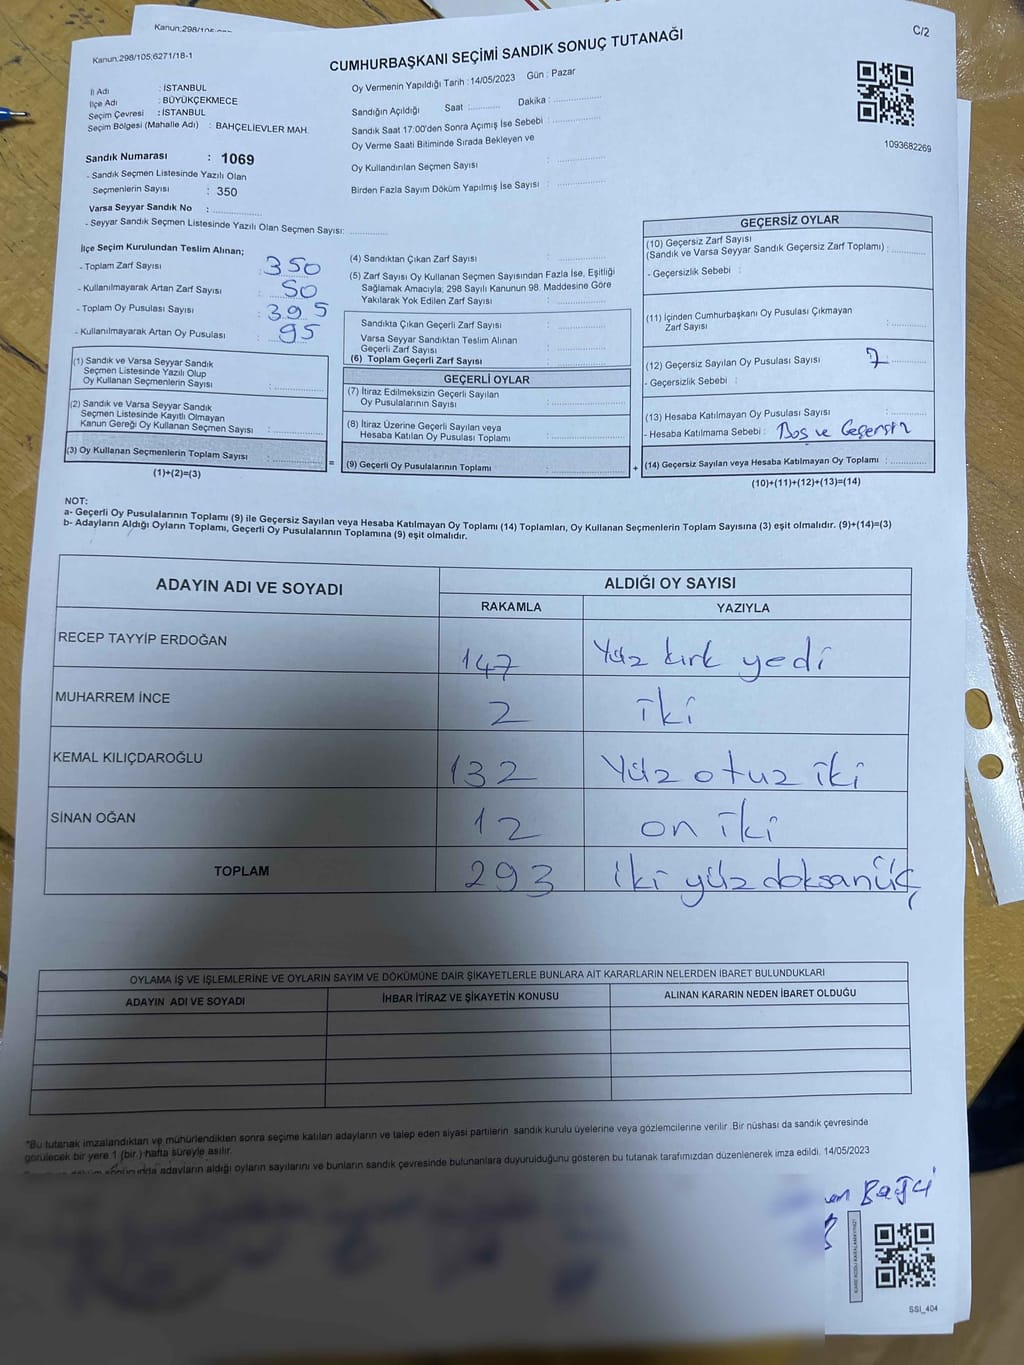 Kanun:298/105
Kanun:298/105;6271/18-1
C/2
CUMHURBAŞKANI SEÇİMİ SANDIK SONUÇ TUTANAĞI
İl Adı : İSTANBUL
İlçe Adı : BÜYÜKÇEKMECE
Seçim Çevresi : İSTANBUL
Seçim Bölgesi (Mahalle Adı) : BAHÇELİEVLER MAH.
Sandık Numarası : 1069
- Sandık Seçmen Listesinde Yazılı Olan
Seçmenlerin Sayısı : 350
Varsa Seyyar Sandık No :
- Seyyar Sandık Seçmen Listesinde Yazılı Olan Seçmen Sayısı:
Oy Vermenin Yapıldığı Tarih :14/05/2023 Gün : Pazar
Sandığın Açıldığı Saat : Dakika :
Sandık Saat 17:00'den Sonra Açımış İse Sebebi :
Oy Verme Saati Bitiminde Sırada Bekleyen ve
Oy Kullandırılan Seçmen Sayısı :
Birden Fazla Sayım Döküm Yapılmış İse Sayısı :
1093682269
İlçe Seçim Kurulundan Teslim Alınan;
- Toplam Zarf Sayısı : 350
- Kullanılmayarak Artan Zarf Sayısı : 50
- Toplam Oy Pusulası Sayısı : 395
- Kullanılmayarak Artan Oy Pusulası : 95
(1) Sandık ve Varsa Seyyar Sandık
Seçmen Listesinde Yazılı Olup
Oy Kullanan Seçmenlerin Sayısı :
(2) Sandık ve Varsa Seyyar Sandık
Seçmen Listesinde Kayıtlı Olmayan
Kanun Gereği Oy Kullanan Seçmen Sayısı :
(3) Oy Kullanan Seçmenlerin Toplam Sayısı :
(1)+(2)=(3)
=
(4) Sandıktan Çıkan Zarf Sayısı :
(5) Zarf Sayısı Oy Kullanan Seçmen Sayısından Fazla İse, Eşitliği
Sağlamak Amacıyla; 298 Sayılı Kanunun 98. Maddesine Göre
Yakılarak Yok Edilen Zarf Sayısı :
Sandıkta Çıkan Geçerli Zarf Sayısı :
Varsa Seyyar Sandıktan Teslim Alınan
Geçerli Zarf Sayısı :
(6) Toplam Geçerli Zarf Sayısı :
GEÇERLİ OYLAR
(7) İtiraz Edilmeksizin Geçerli Sayılan
Oy Pusulalarının Sayısı :
(8) İtiraz Üzerine Geçerli Sayılan veya
Hesaba Katılan Oy Pusulası Toplamı :
(9) Geçerli Oy Pusulalarının Toplamı :
+
GEÇERSİZ OYLAR
(10) Geçersiz Zarf Sayısı
(Sandık ve Varsa Seyyar Sandık Geçersiz Zarf Toplamı) :
- Geçersizlik Sebebi :
(11) İçinden Cumhurbaşkanı Oy Pusulası Çıkmayan
Zarf Sayısı :
(12) Geçersiz Sayılan Oy Pusulası Sayısı : 7
- Geçersizlik Sebebi :
(13) Hesaba Katılmayan Oy Pusulası Sayısı :
- Hesaba Katılmama Sebebi : Boş ve Geçersiz
(14) Geçersiz Sayılan veya Hesaba Katılmayan Oy Toplamı :
(10)+(11)+(12)+(13)=(14)
NOT:
a- Geçerli Oy Pusulalarının Toplamı (9) ile Geçersiz Sayılan veya Hesaba Katılmayan Oy Toplamı (14) Toplamları, Oy Kullanan Seçmenlerin Toplam Sayısına (3) eşit olmalıdır. (9)+(14)=(3)
b- Adayların Aldığı Oyların Toplamı, Geçerli Oy Pusulalarının Toplamına (9) eşit olmalıdır.
ADAYIN ADI VE SOYADI ALDIĞI OY SAYISI
RAKAMLA YAZIYLA
RECEP TAYYİP ERDOĞAN 147 Yüz kırk yedi
MUHARREM İNCE 2 iki
KEMAL KILIÇDAROĞLU 132 Yüz otuz iki
SİNAN OĞAN 12 on iki
TOPLAM 293 iki yüz doksanüç
OYLAMA İŞ VE İŞLEMLERİNE VE OYLARIN SAYIM VE DÖKÜMÜNE DAİR ŞİKAYETLERLE BUNLARA AİT KARARLARIN NELERDEN İBARET BULUNDUKLARI
ADAYIN ADI VE SOYADI İHBAR İTİRAZ VE ŞİKAYETİN KONUSU ALINAN KARARIN NEDEN İBARET OLDUĞU
*Bu tutanak imzalandıktan ve mühürlendikten sonra seçime katılan adayların ve talep eden siyasi partilerin sandık kurulu üyelerine veya gözlemcilerine verilir .Bir nüshası da sandık çevresinde
görülecek bir yere 1 (bir ) hafta süreyle asılır.
adayların aldığı oyların sayılarını ve bunların sandık çevresinde bulunanlara duyurulduğunu gösteren bu tutanak tarafımızdan düzenlenerek imza edildi. 14/05/2023
Bağci
SSI_404